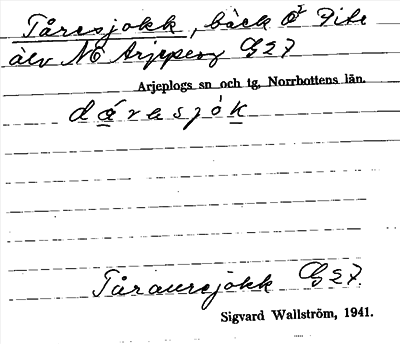 Tåresjokk, bäck Ö² Pite
älv NÖ Arjeplog G 27
Arjeplogs sn och tg, Norrbottens län.
dɑ́rɐsjòk
Tåraursjokk G 27.
Sigvard Wallström, 1941.